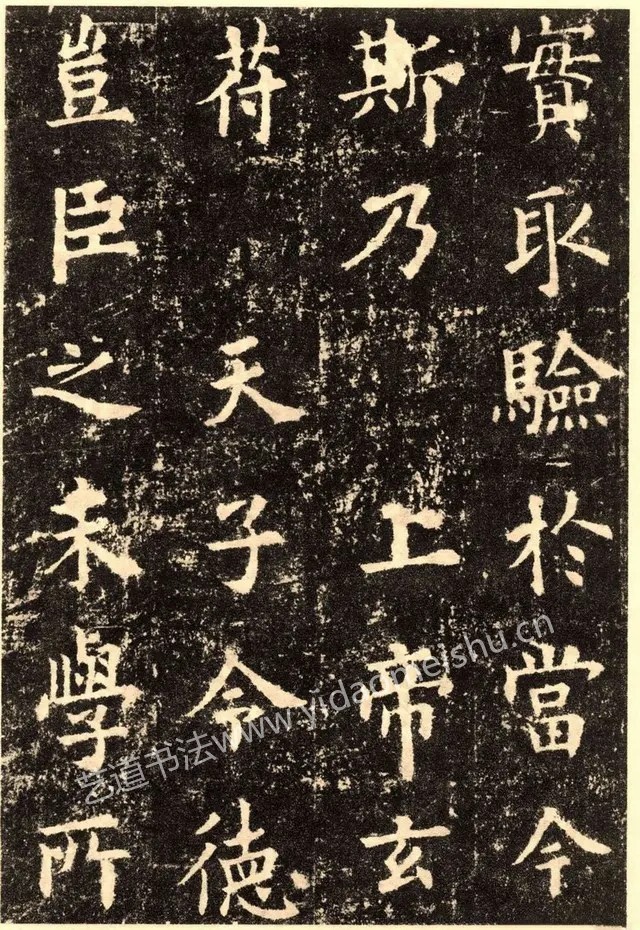 實取驗於當今
斯乃 上帝玄
苻 天子令德
豈臣之末學所
艺道书法www.yidaomeishu.cn